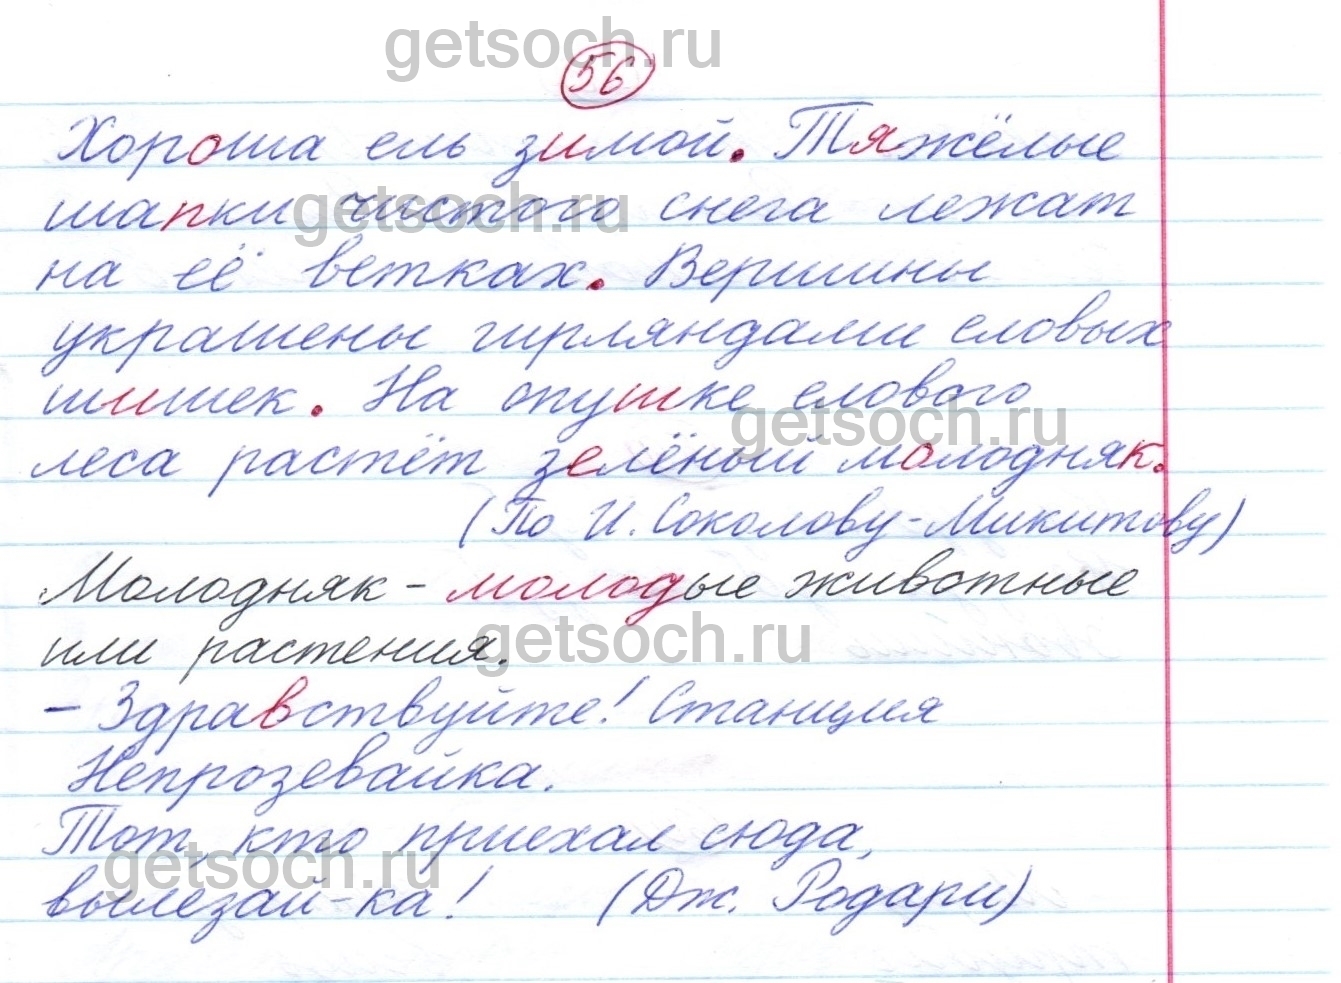 getsoch.ru
56
Хороша ель зимой. Тяжёлые
шапки чистого снега лежат
getsoch.ru
на её ветках. Вершины
украшены гирляндами еловых
шишек. На опушке елового
getsoch.ru
леса растёт зелёный молодняк.
(По И. Соколову-Микитову)
Молодняк - молодые животные
или растения.
getsoch.ru
- Здравствуйте! Станция
Непрозевайка.
Тот, кто приехал сюда,
getsoch.ru
вылезай-ка! (Дж. Родари)